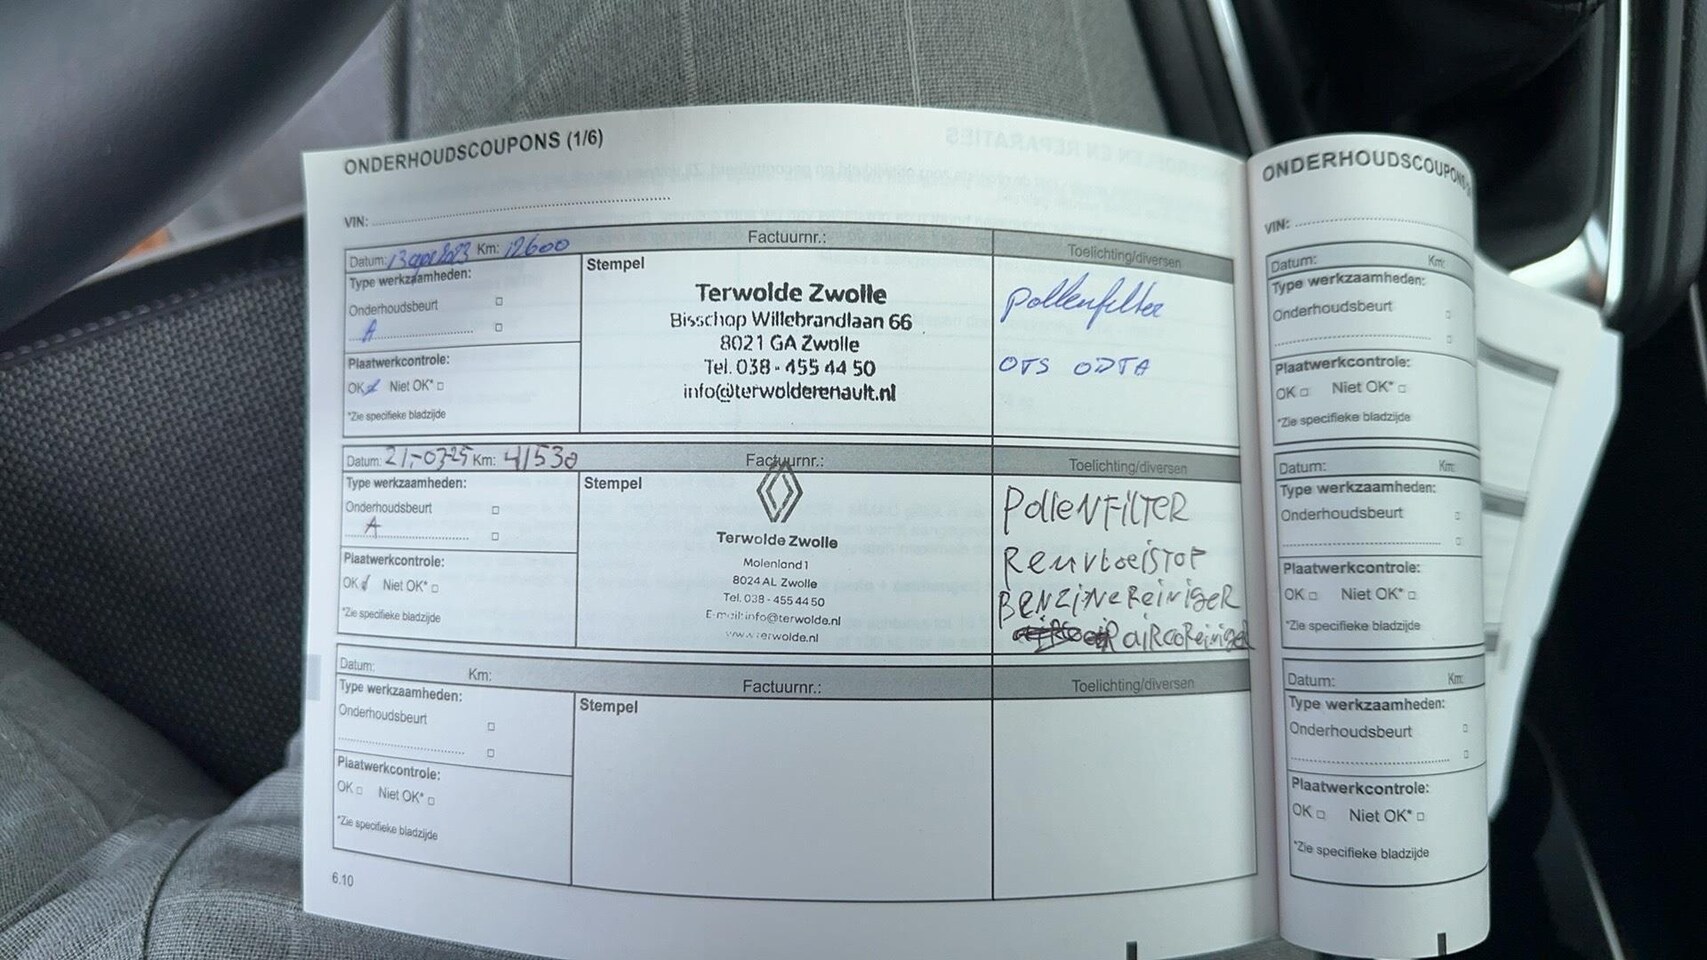 ONDERHOUDSCOUPONS (1/6)
VIN:
Datum: 13 apr 2023 Km: 12600 Factuurnr.: Toelichting/diversen
Type werkzaamheden:
Onderhoudsbeurt
A
Plaatwerkcontrole:
OK Niet OK*
*Zie specifieke bladzijde
Stempel
Terwolde Zwolle
Bisschop Willebrandlaan 66
8021 GA Zwolle
Tel. 038 - 455 44 50
info@terwolderenault.nl
Pollenfilter
OTS ODTA
Datum: 21-07-25 Km: 41530 Factuurnr.: Toelichting/diversen
Type werkzaamheden:
Onderhoudsbeurt
A
Plaatwerkcontrole:
OK Niet OK*
*Zie specifieke bladzijde
Stempel
Terwolde Zwolle
Molenland 1
8024 AL Zwolle
Tel. 038 - 455 44 50
E-mail: info@terwolde.nl
www.terwolde.nl
POllENFilTER
RemvloeiSTOF
BENZiNeReinigeR
aiRcoReinigeR
Datum: Km: Factuurnr.: Toelichting/diversen
Type werkzaamheden:
Onderhoudsbeurt
Plaatwerkcontrole:
OK Niet OK*
*Zie specifieke bladzijde
Stempel
6.10
ONDERHOUDSCOUPONS
VIN:
Datum: Km:
Type werkzaamheden:
Onderhoudsbeurt
Plaatwerkcontrole:
OK Niet OK*
*Zie specifieke bladzijde
Datum: Km:
Type werkzaamheden:
Onderhoudsbeurt
Plaatwerkcontrole:
OK Niet OK*
*Zie specifieke bladzijde
Datum: Km:
Type werkzaamheden:
Onderhoudsbeurt
Plaatwerkcontrole:
OK Niet OK*
*Zie specifieke bladzijde